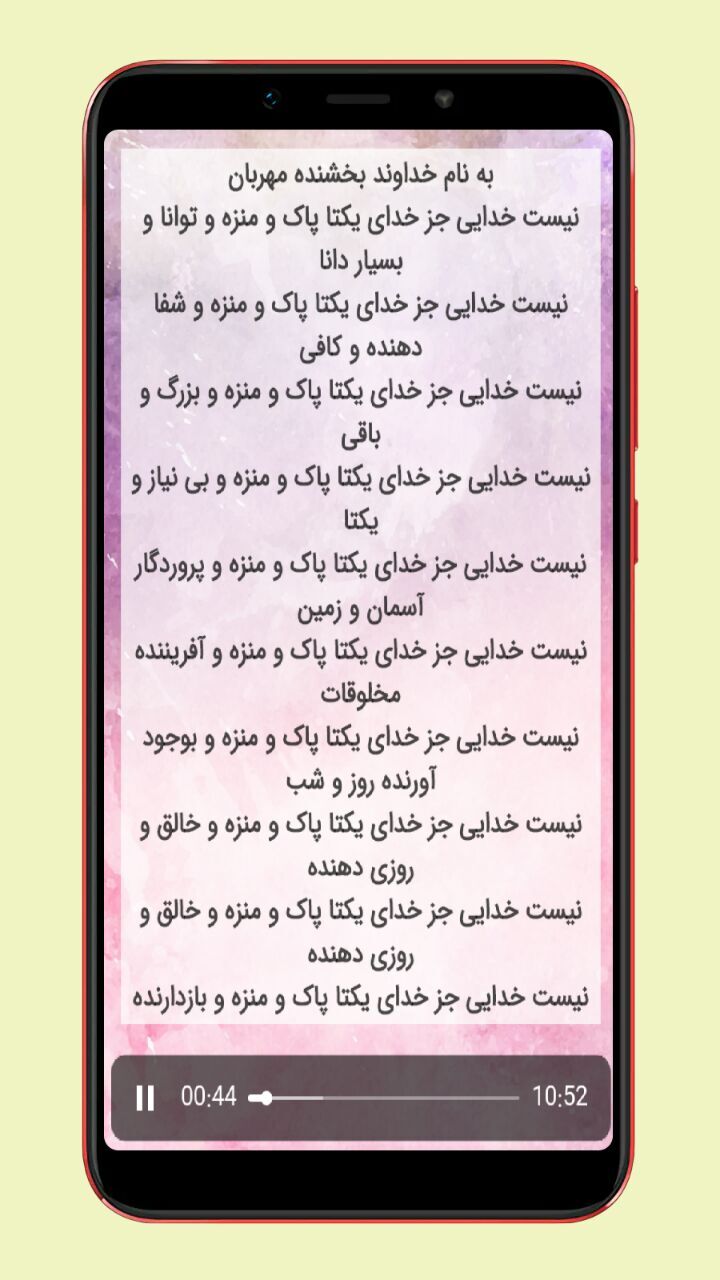 به نام خداوند بخشنده مهربان
نیست خدایی جز خدای یکتا پاک و منزه و توانا و
بسیار دانا
نیست خدایی جز خدای یکتا پاک و منزه و شفا
دهنده و کافی
نیست خدایی جز خدای یکتا پاک و منزه و بزرگ و
باقی
نیست خدایی جز خدای یکتا پاک و منزه و بی نیاز و
یکتا
نیست خدایی جز خدای یکتا پاک و منزه و پروردگار
آسمان و زمین
نیست خدایی جز خدای یکتا پاک و منزه و آفریننده
مخلوقات
نیست خدایی جز خدای یکتا پاک و منزه و بوجود
آورنده روز و شب
نیست خدایی جز خدای یکتا پاک و منزه و خالق و
روزی دهنده
نیست خدایی جز خدای یکتا پاک و منزه و خالق و
روزی دهنده
نیست خدایی جز خدای یکتا پاک و منزه و بازدارنده
00:44 10:52